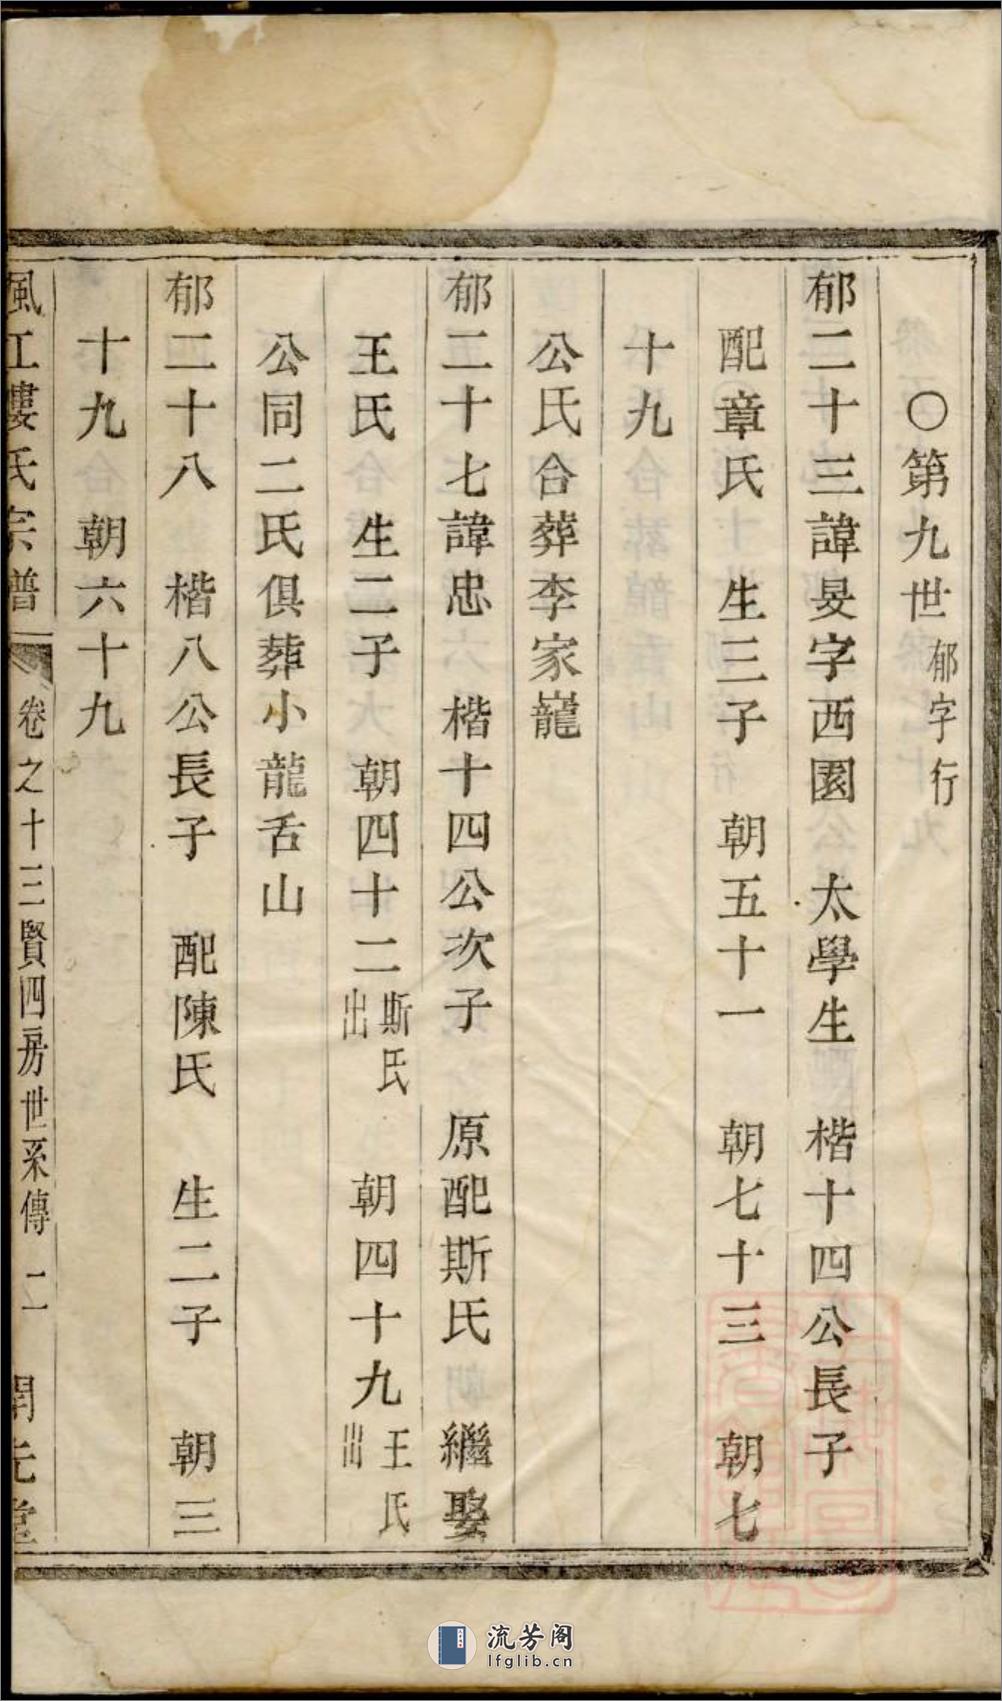 ○第九世郁字行
郁二十三諱旻字西園　太學生　楷十四公長子
配章氏　生三子　朝五十一　朝七十三　朝七
十九
公氏合葬李家巃
郁二十七諱忠　楷十四公次子　原配斯氏　繼娶
王氏　生二子　朝四十二斯氏出　朝四十九王氏出
公同二氏俱葬小龍舌山
郁二十八　楷八公長子　配陳氏　生二子　朝三
十九　朝六十九
楓江婁氏宗譜　卷之十三賢四房世系傳　二
流芳阁
lfglib.cn